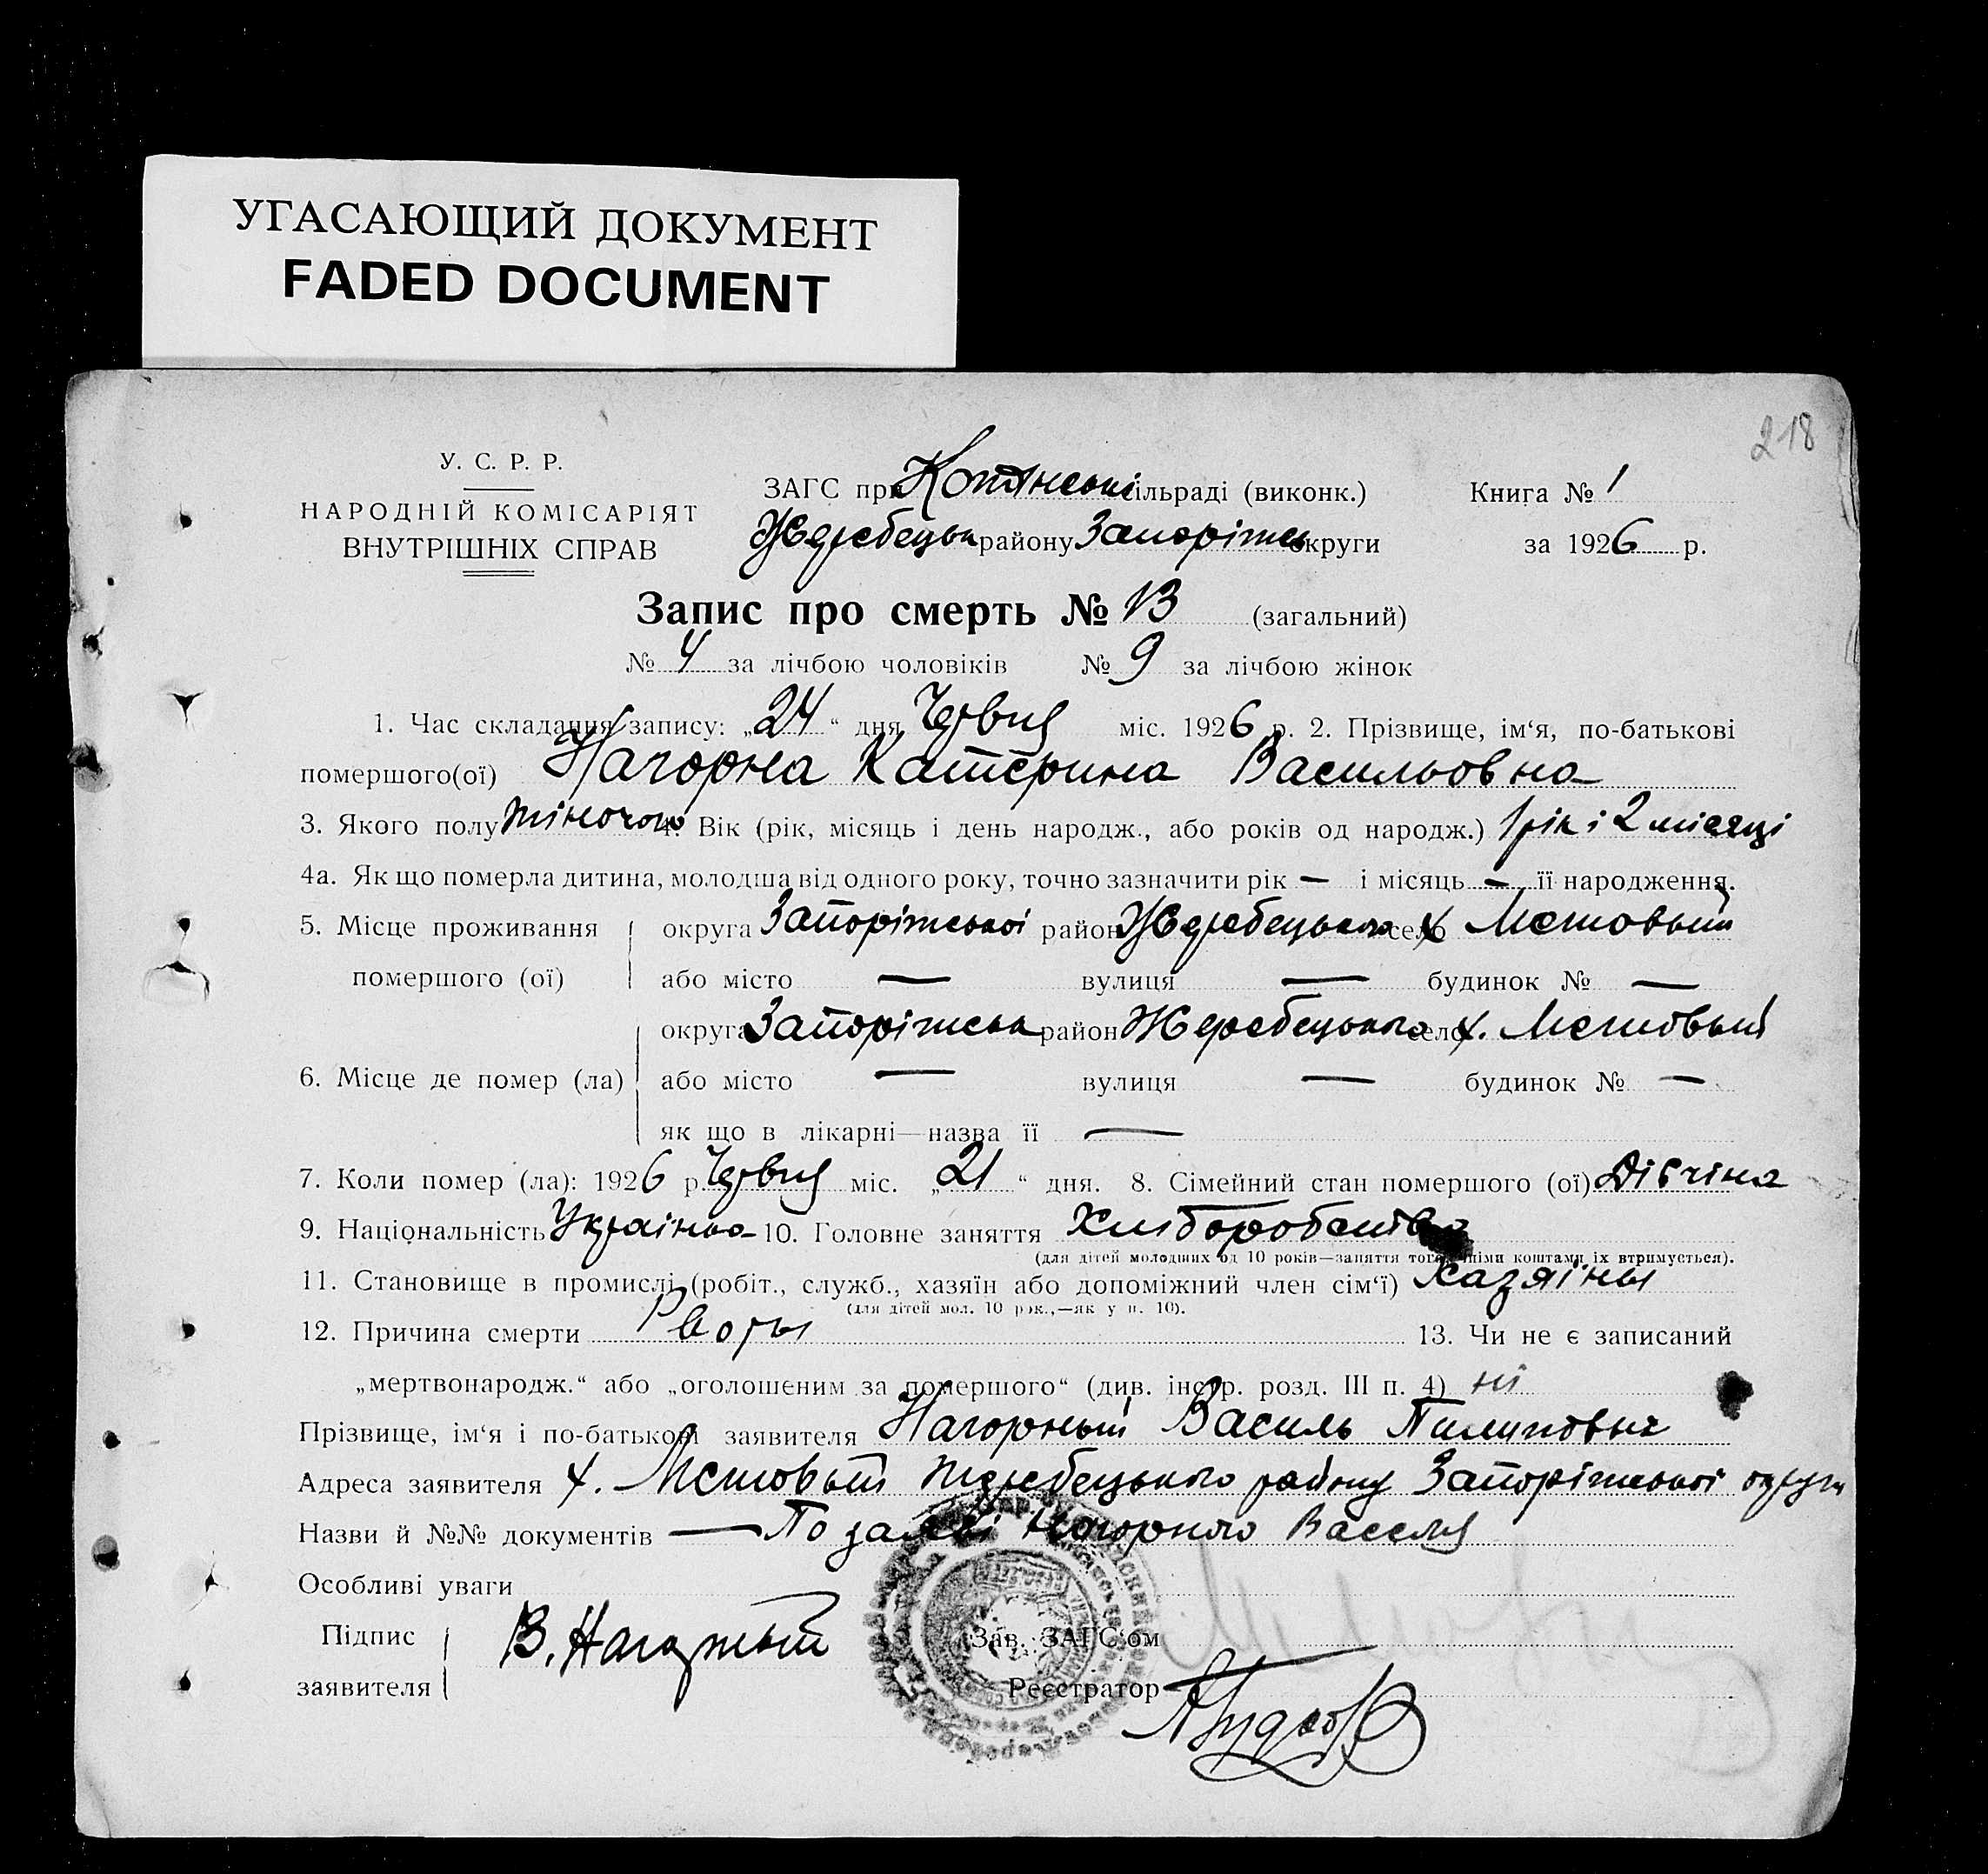 УГАСАЮЩИЙ ДОКУМЕНТ
FADED DOCUMENT
218
У. С. Р. Р.
НАРОДНІЙ КОМІСАРІЯТ
ВНУТРІШНІХ СПРАВ
ЗАГС при сільраді (виконк.) Книга № 1
Жеребецьк району Запоріжс округи за 1926 р.
Запис про смерть № 13 (загальний)
№ 4 за лічбою чоловіків № 9 за лічбою жінок
1. Час складання запису: „24“ дня Червня міс. 1926 р. 2. Прізвище, ім‘я, по-батькові
помершого(ої) Нагорна Катерина Васильовна
3. Якого полу жіночого 4. Вік (рік, місяць і день народж., або років од народж.) 1 рік і 2 місяці
4а. Як що померла дитина, молодша від одного року, точно зазначити рік — і місяць — її народження.
5. Місце проживання помершого (ої) округа Запоріжської район Жеребецького село х Мстовый
або місто — вулиця — будинок № —
6. Місце де помер (ла) округа Запоріжськ район Жеребецького село х. Мстовый
або місто — вулиця — будинок № —
як що в лікарні—назва її —
7. Коли помер (ла): 1926 р. Червня міс. „21“ дня. 8. Сімейний стан помершого (ої) Дівчіна
9. Національність Україньа 10. Головне заняття Хлиборобство
(для дітей молодших од 10 років—заняття того, чиїми коштами їх втримується).
11. Становище в промислі (робіт., служб., хазяїн або допоміжний член сім‘ї) Хазяїны
(для дітей мол. 10 рок.,—як у п. 10).
12. Причина смерти Рвоты 13. Чи не є записаний
„мертвонародж.“ або „оголошеним за помершого“ (див. інстр. розд. III п. 4) ні
Прізвище, ім‘я і по-батькові заявителя Нагорный Василь Пилиповыч
Адреса заявителя х. Мстовый Жеребецького району Запоріжської округи
Назви й №№ документів — По заяві Нагорного Василя
Особливі уваги
Підпис заявителя В. Нагорный
Зав. ЗАГС‘ом
Реєстратор